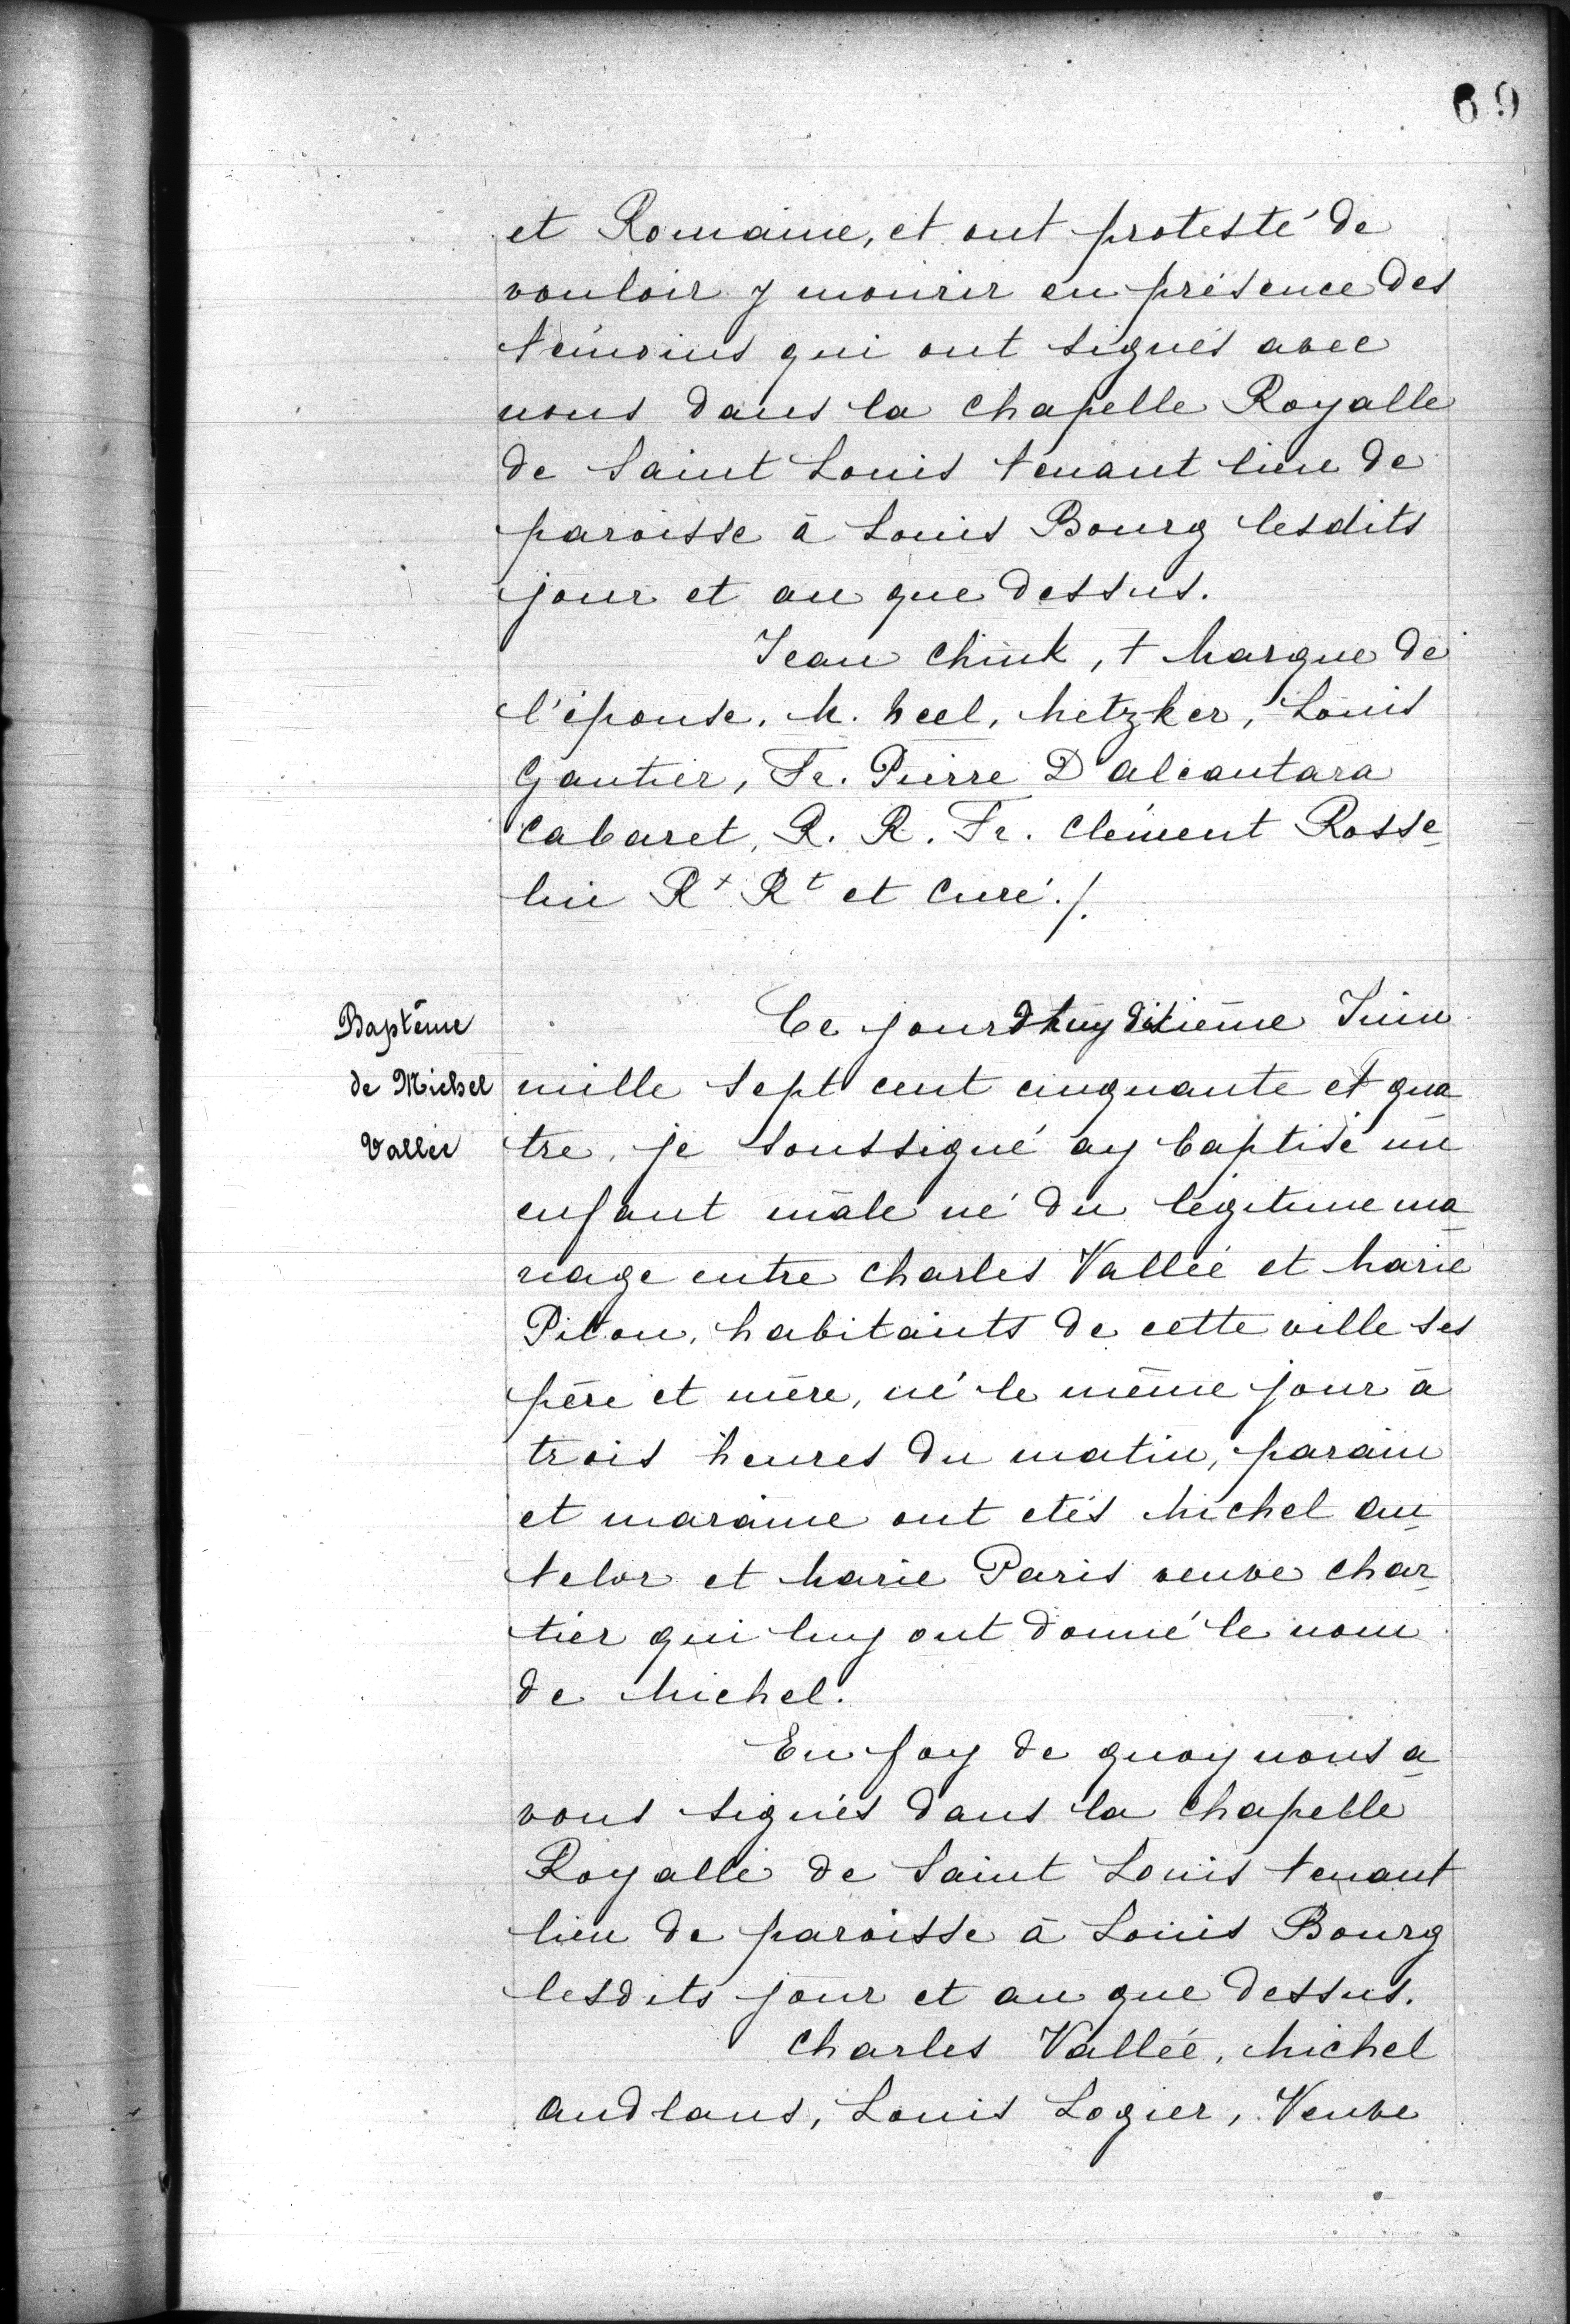 69
et Romaine, et ont protesté de
vouloir y mourir en présence des
témoins qui ont signés avec
nous dans la chapelle Royalle
de Saint Louis tenant lieu de
paroisse à Louis Bourg lesdits
jour et an que dessus.
Jean Chink, + Marque de
l'épouse, M. heel, Metzker, Louis
Gautier, Fr. Pierre D'alcantara
Cabaret, R. R. Fr. Clément Rosse-
lin Rt Rt et Curé ./.
Baptême
de Michel
Vallée
Ce jourdhuy dixième Juin
mille sept cent cinquante et qua-
tre, je soussigné ay baptisé un
enfant mâle né du légitime ma-
riage entre Charles Vallée et Marie
Piton, habitants de cette ville ses
père et mère, né le même jour à
trois heures du matin, parain
et maraine ont etés Michel An-
telor et Marie Paris veuve Char-
tier qui luy ont donné le nom
de Michel.
En foy de quoy nous a-
vons signés dans la Chapelle
Royalle de Saint Louis tenant
lieu de paroisse à Louis Bourg
lesdits jour et an que dessus.
Charles Vallée, Michel
Andlans, Louis Logier, Veuve